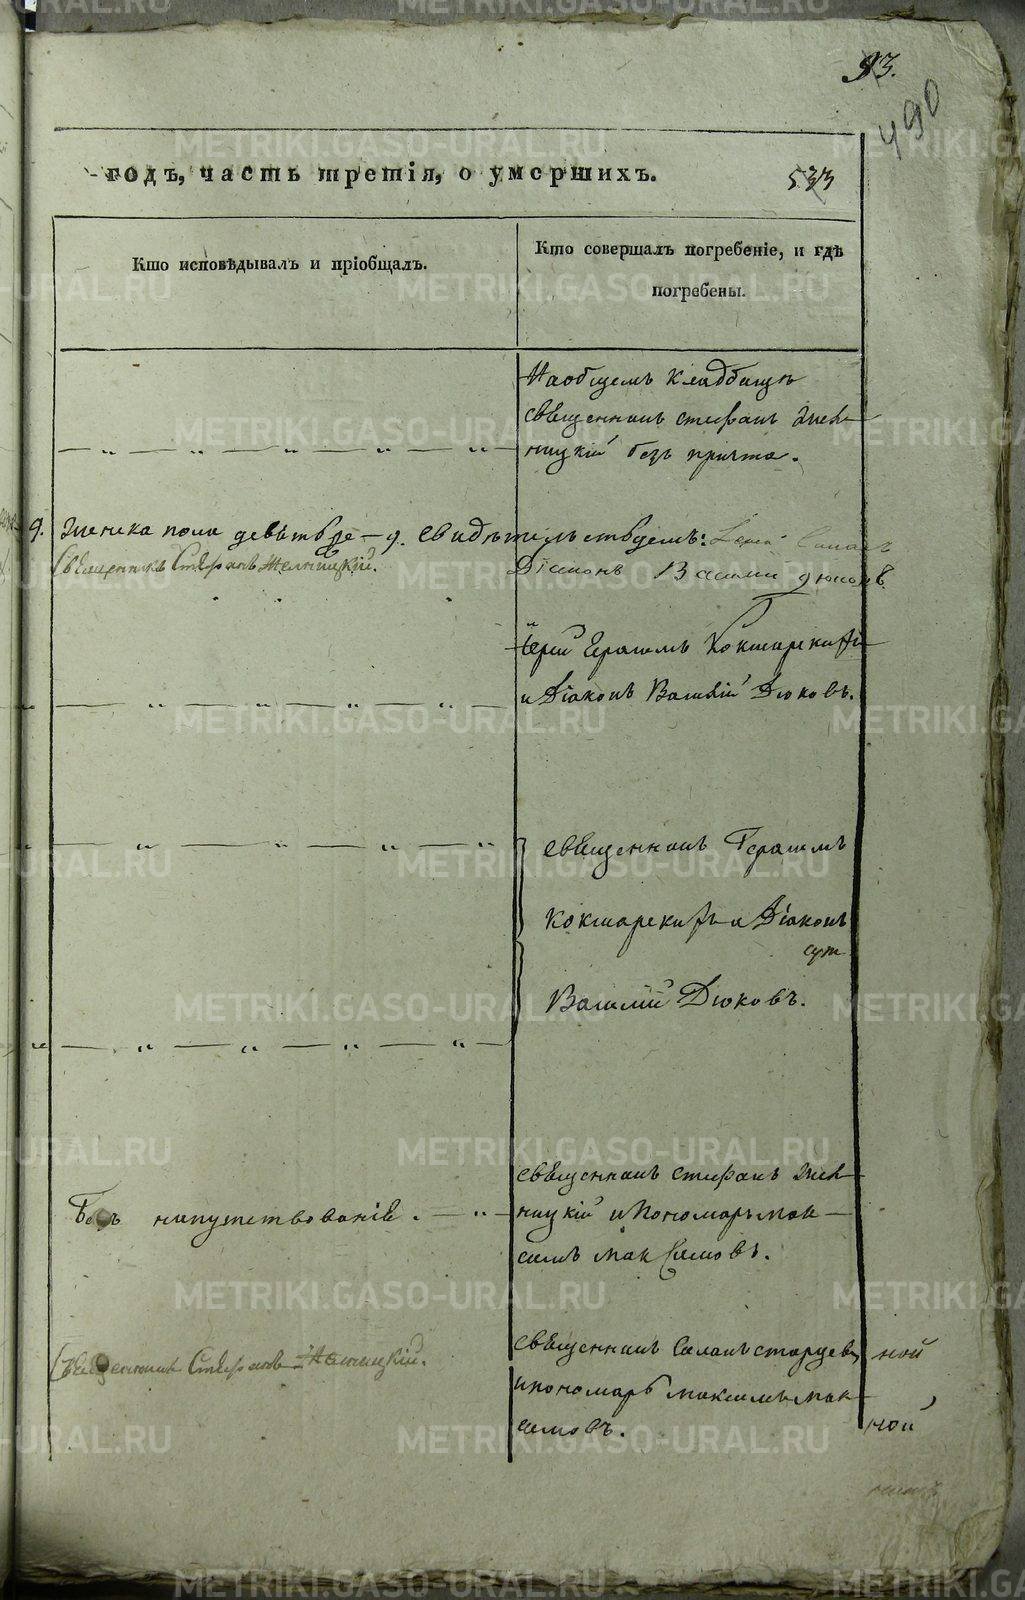 93.
490
годъ, часть третія, о умершихъ.
533
Кто исповѣдывалъ и пріобщалъ.
Кто совершалъ погребеніе, и гдѣ
погребены.
На общемъ кладбищѣ
священникъ Стефанъ Жел-
ницкій безъ причта.
9. женска пола девять вѣ — 9. свидѣтельствуемъ:
Священникъ Стефанъ Желницкій.
Діаконъ Василій Дюковъ
Іерей Герасимъ Кокшарскихъ
и Діаконъ Василій Дюковъ.
священникъ Герасимъ
Кокшарскихъ и Діаконъ
Василій Дюковъ.
Безъ напутствованія.
священникъ Стефанъ Жел-
ницкій и Пономарь Мак-
симъ Максимовъ.
Священникъ Стефанъ Желницкій.
священникъ Старцев
ной
и пономарь Максимъ Мак-
симовъ.
ной
METRIKI.GASO-URAL.RU